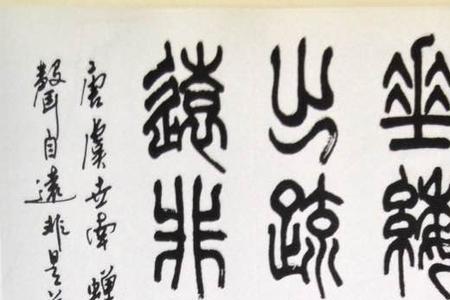 垂緌
出疏
遠非
唐虞世南蟬
聲自遠非是